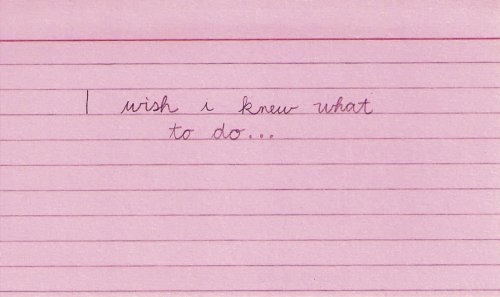 I wish i knew what
to do...